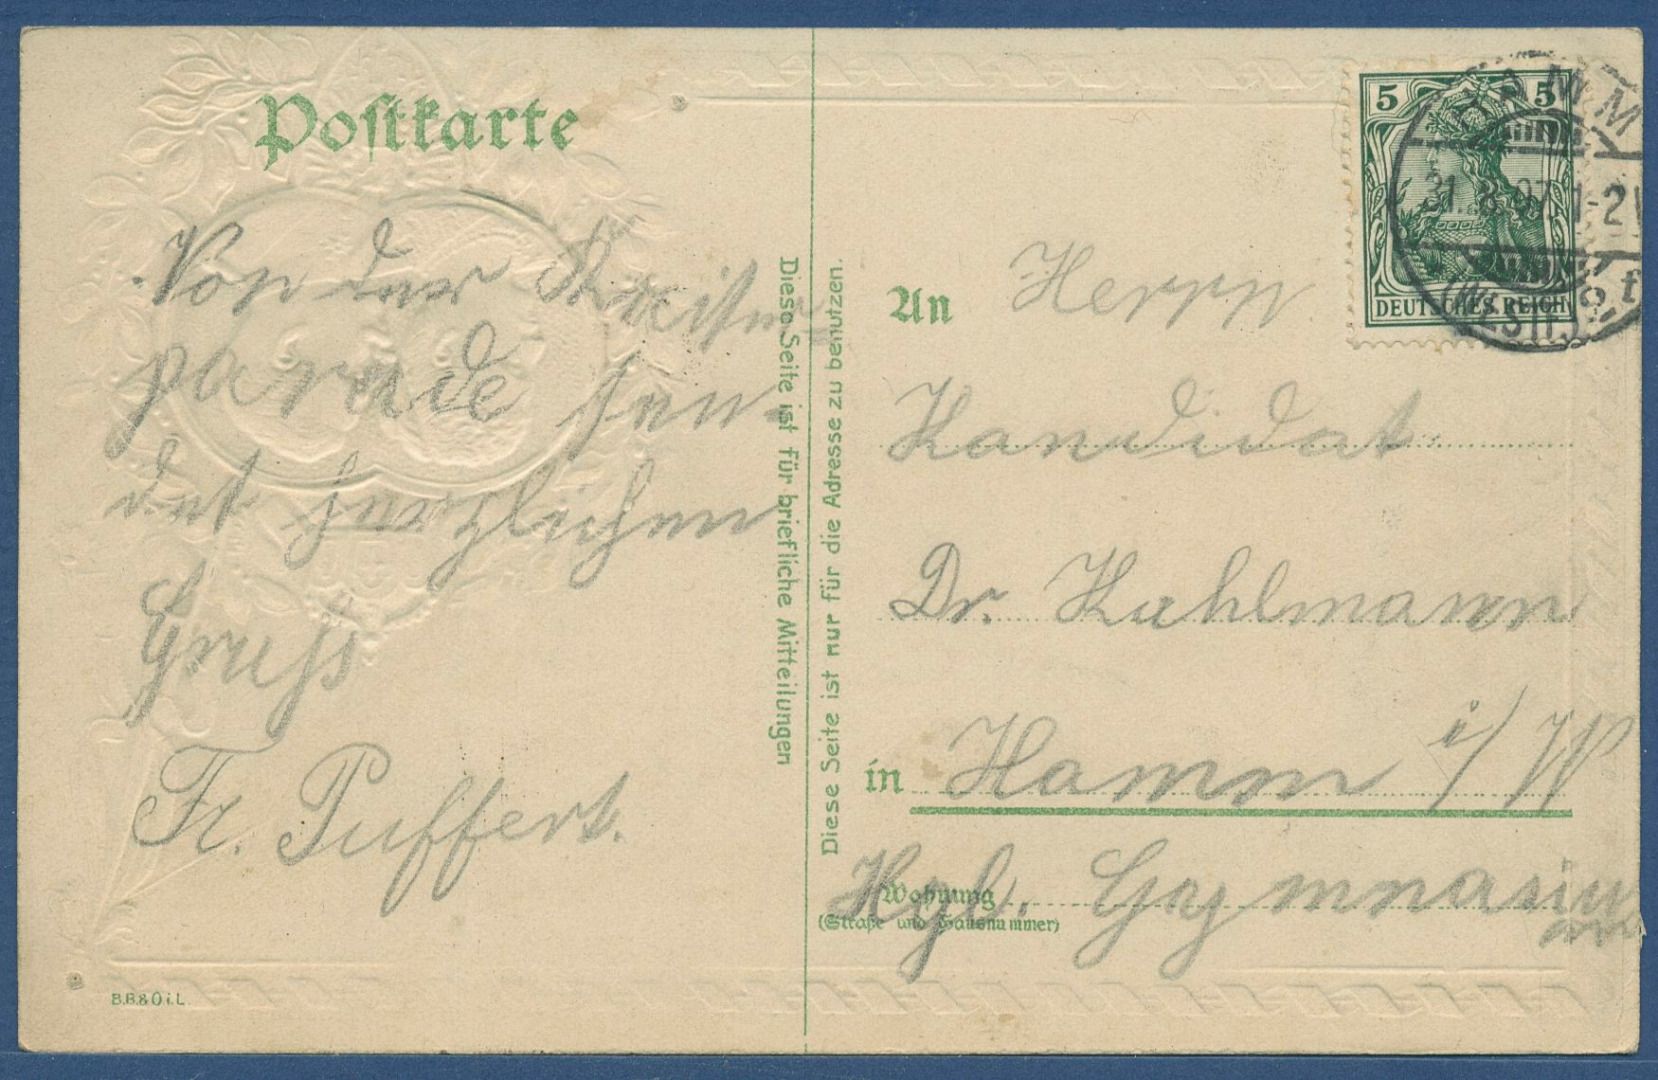 Postkarte
Von der Kaiser-
parade sen-
det herzlichen
Gruß
Fr. Puffert.
B.B.&O.i.L.
Diese Seite ist für briefliche Mitteilungen
Diese Seite ist nur für die Adresse zu benutzen.
5 5
DEUTSCHES REICH
HAMM
31. 8. 07. 1-2
(WESTF.)
An Herrn
Kandidat
Dr. Kahlmann
in Hamm i/W
Wohnung
(Straße und Hausnummer)
Kgl. Gymnasium